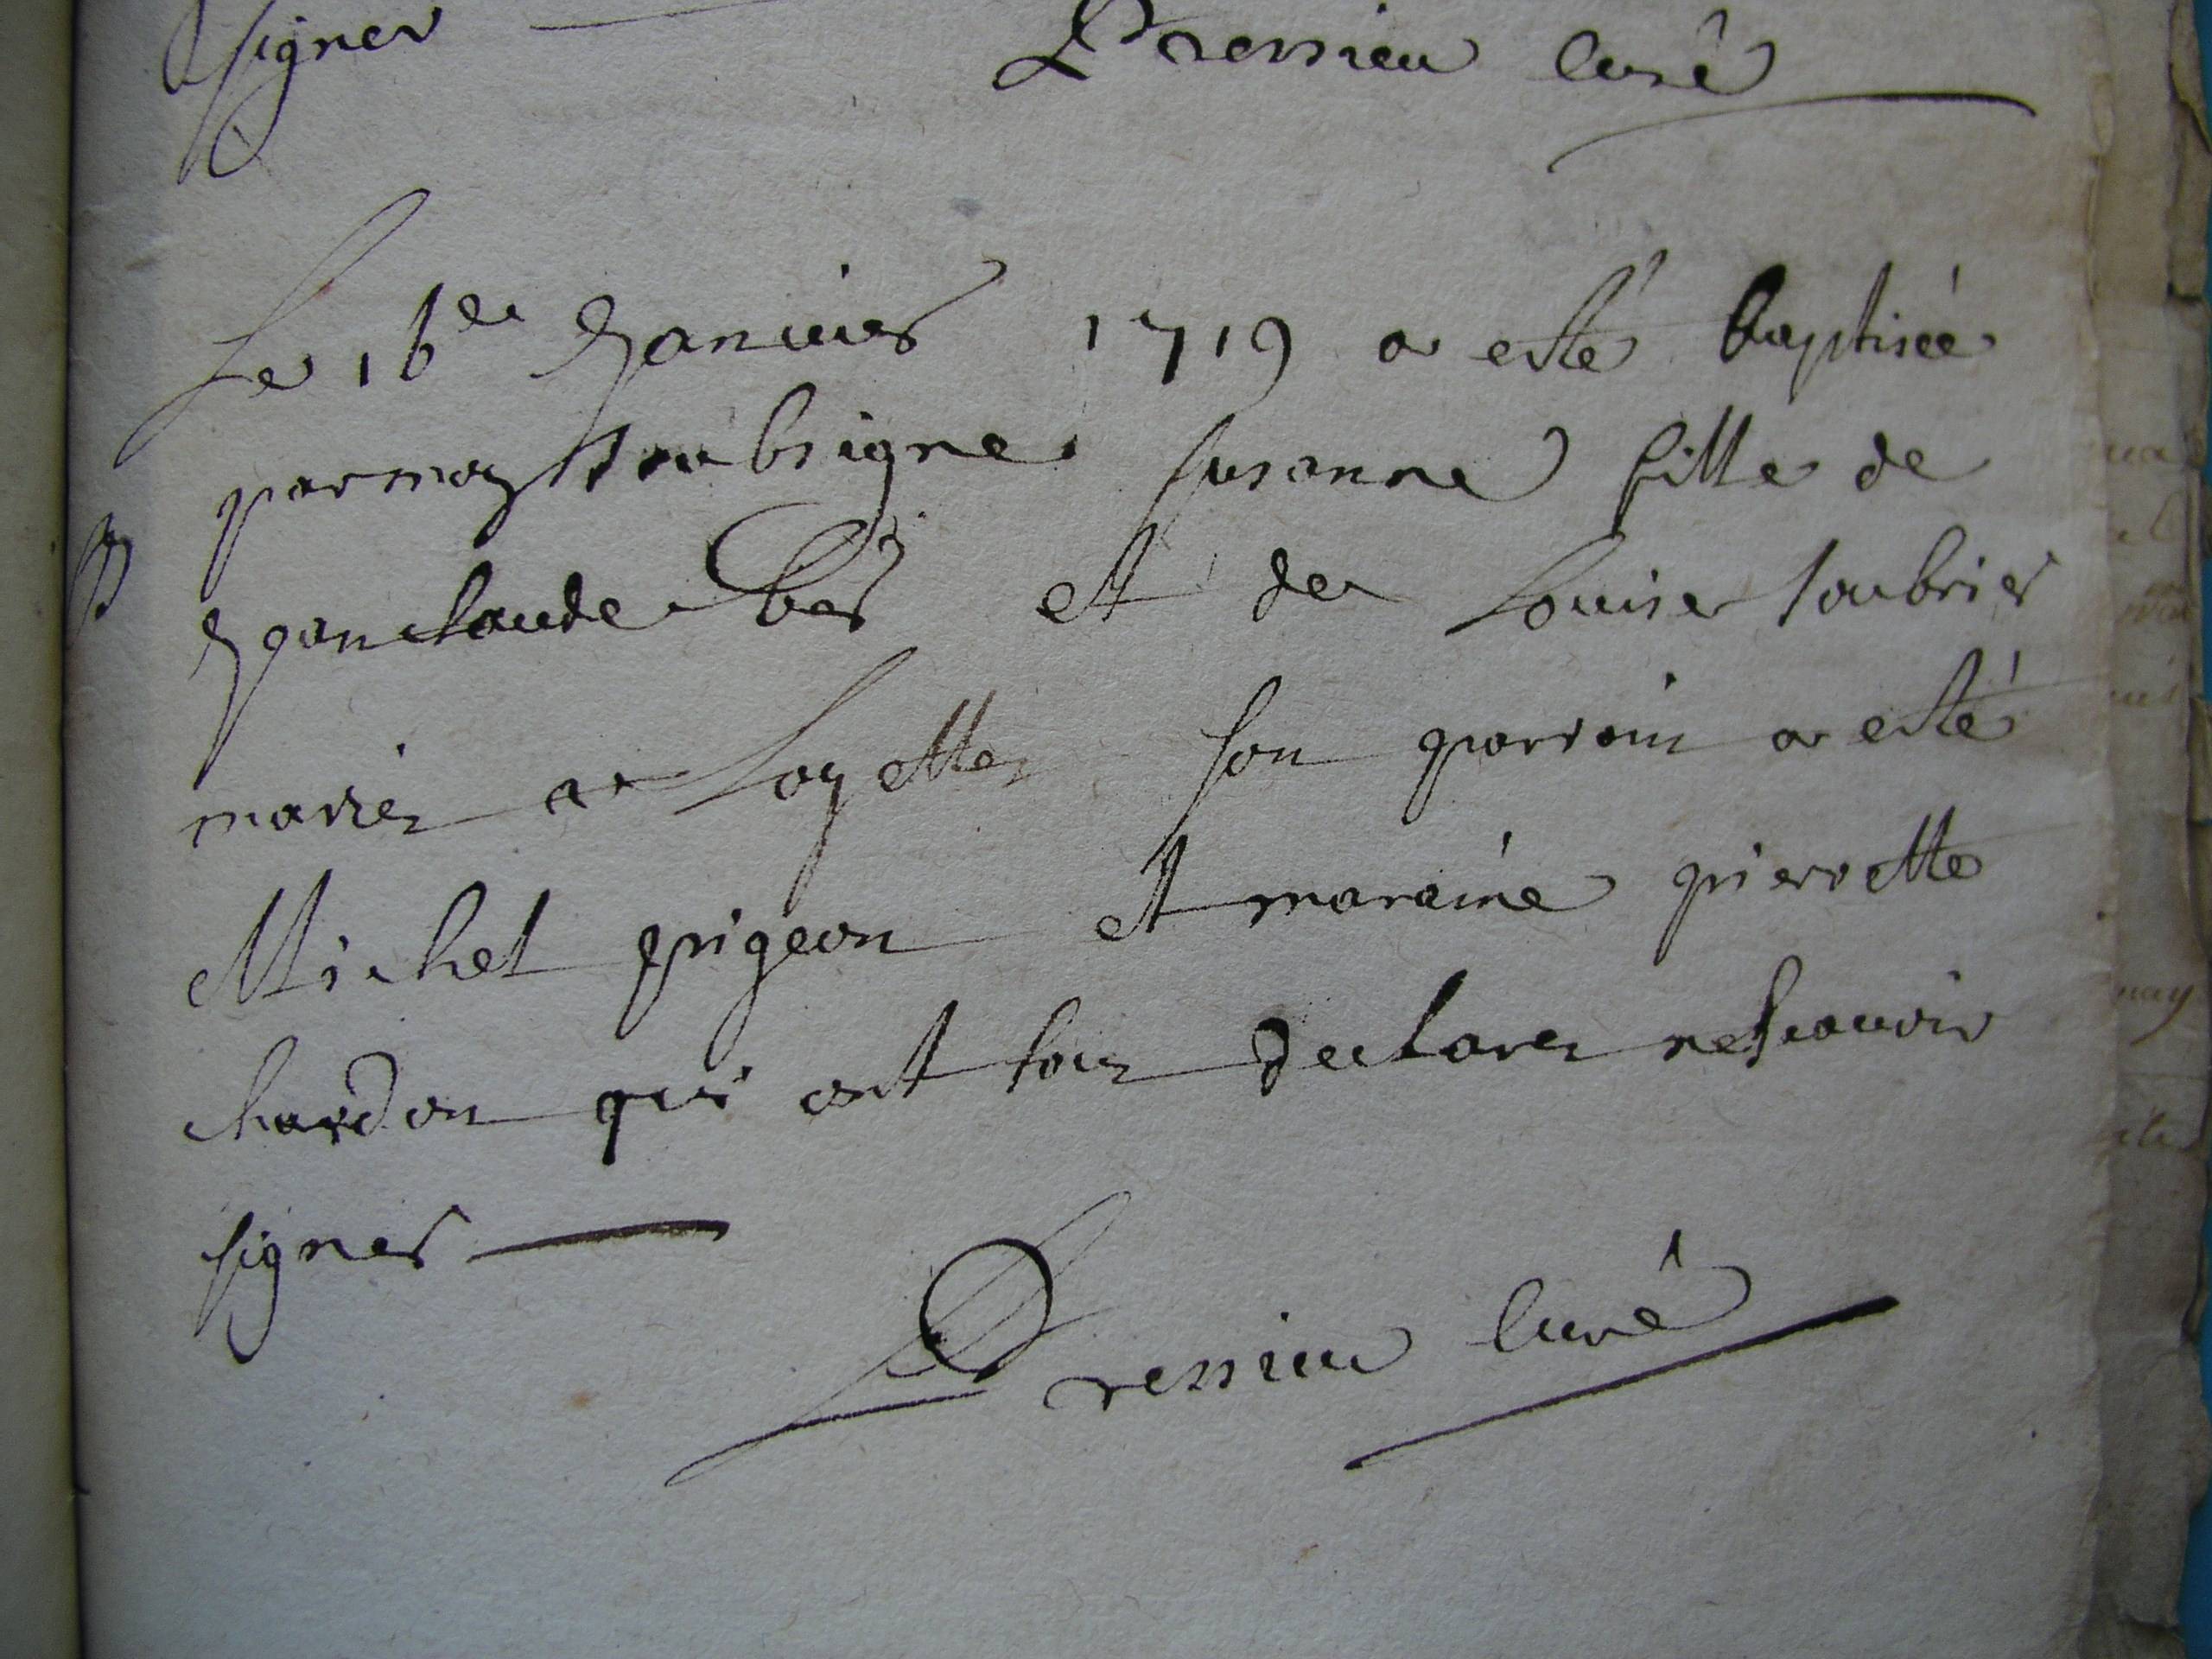 signer
Pressieu Curé
Le 16de Janvier 1719 a esté baptisée
par moy soubsigne susanne fille de
Jean claude et de Louise Soubrier
mariez a Loyettes son parrain a esté
Michel pigeon et maraine pierrette
chardon qui ont tous declarez ne scavoir
signer
Pressieu Curé
B